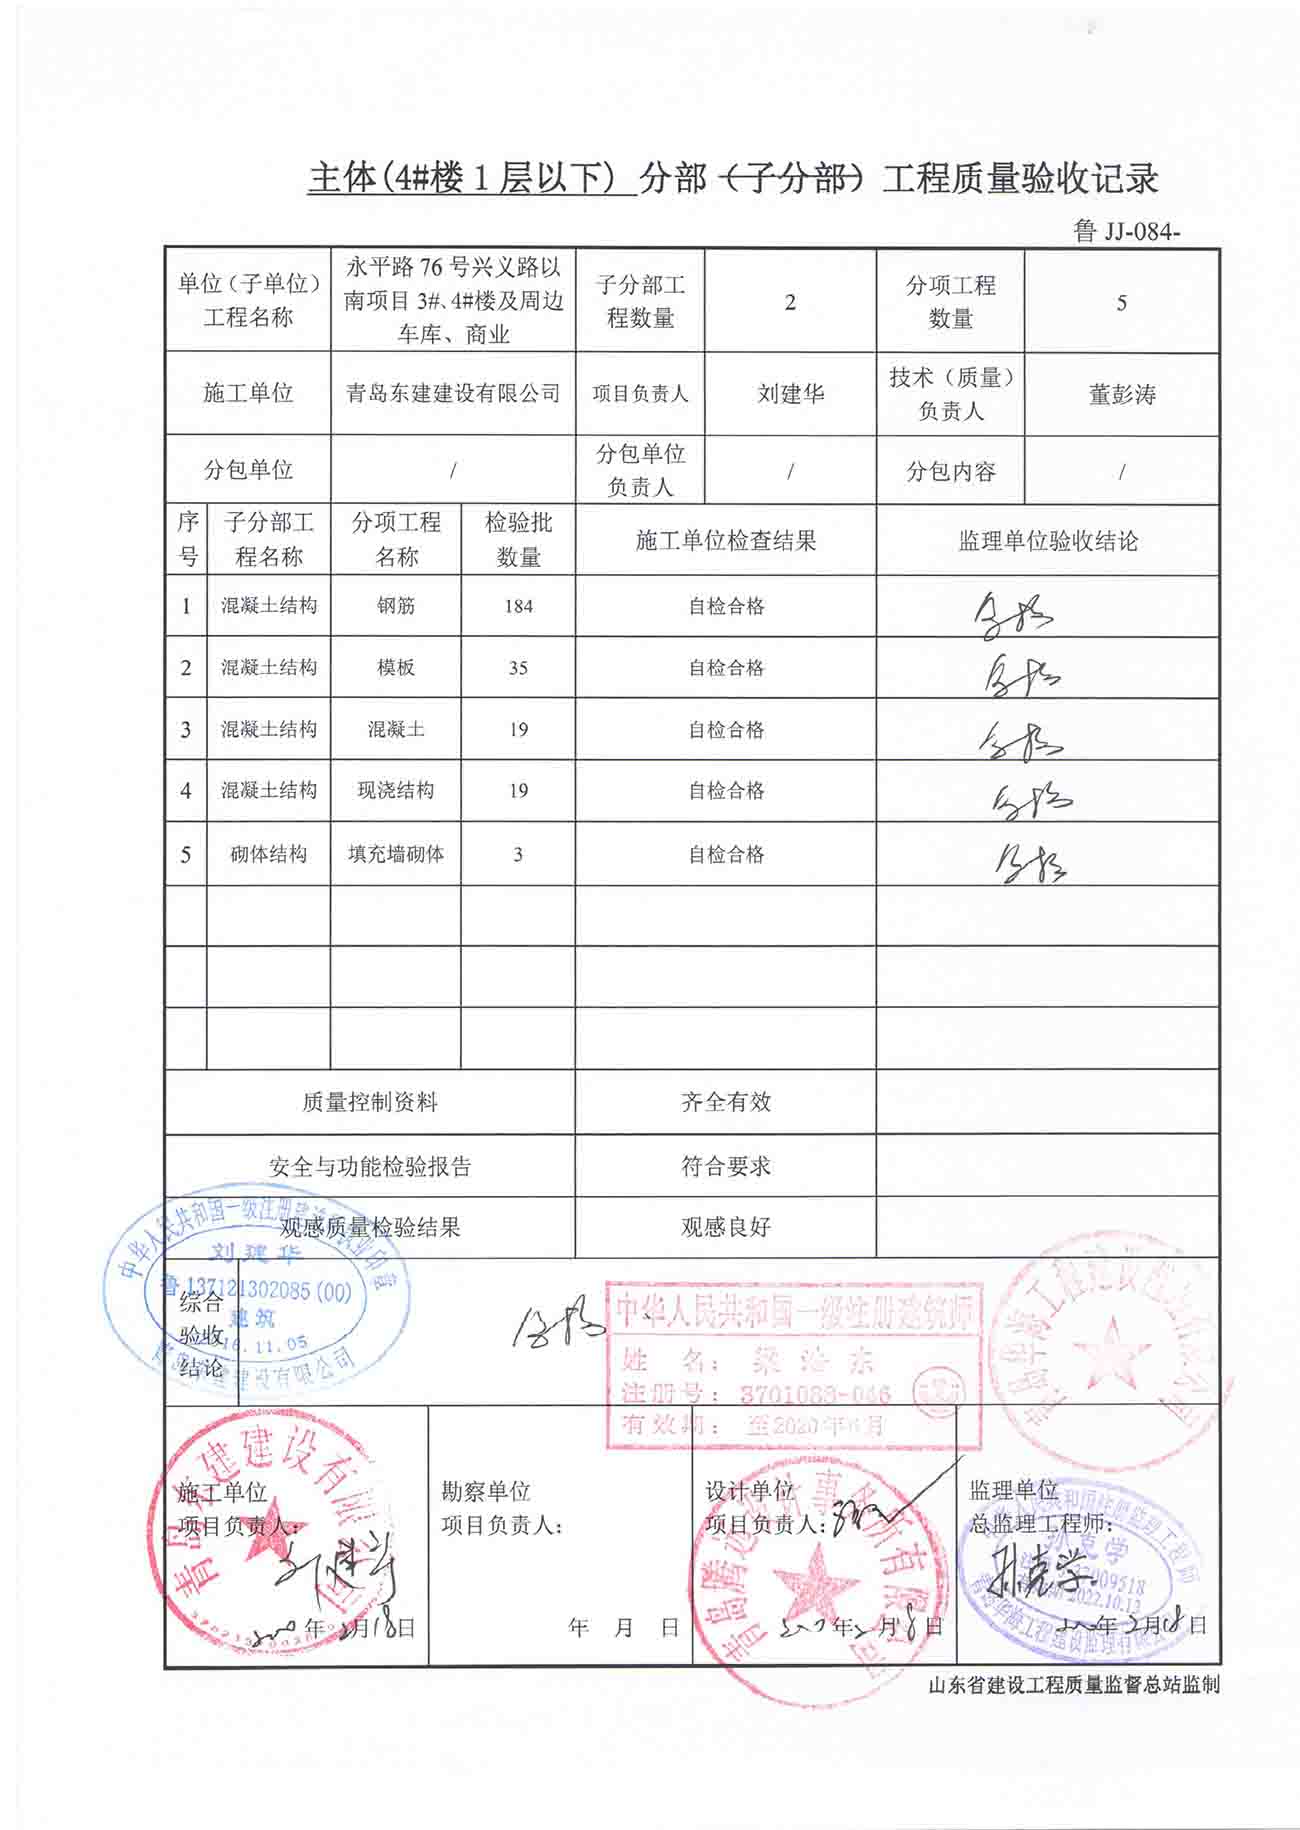 主体(4#楼1层以下) 分部（子分部）工程质量验收记录
鲁 JJ-084-
单位（子单位）工程名称 永平路76号兴义路以南项目3#、4#楼及周边车库、商业 子分部工程数量 2 分项工程数量 5
施工单位 青岛东建建设有限公司 项目负责人 刘建华 技术（质量）负责人 董彭涛
分包单位 / 分包单位负责人 / 分包内容 /
序号 子分部工程名称 分项工程名称 检验批数量 施工单位检查结果 监理单位验收结论
1 混凝土结构 钢筋 184 自检合格 合格
2 混凝土结构 模板 35 自检合格 合格
3 混凝土结构 混凝土 19 自检合格 合格
4 混凝土结构 现浇结构 19 自检合格 合格
5 砌体结构 填充墙砌体 3 自检合格 合格
质量控制资料 齐全有效
安全与功能检验报告 符合要求
观感质量检验结果 观感良好
综合验收结论 合格
中华人民共和国一级注册建造师执业印章
刘建华
鲁137121302085(00)
建筑
16.11.05
青岛东建建设有限公司
中华人民共和国一级注册建筑师
姓名：梁 东
注册号：3701083-046
有效期：至2020年6月
施工单位
项目负责人：刘建华
2020年2月18日
青岛东建建设有限公司
勘察单位
项目负责人：
年 月 日
设计单位
项目负责人：
年2月18日
青岛腾远设计事务所有限公司
监理单位
总监理工程师：孙克学
2020年2月18日
孙克学
009518
2022.10.13
山东省建设工程质量监督总站监制